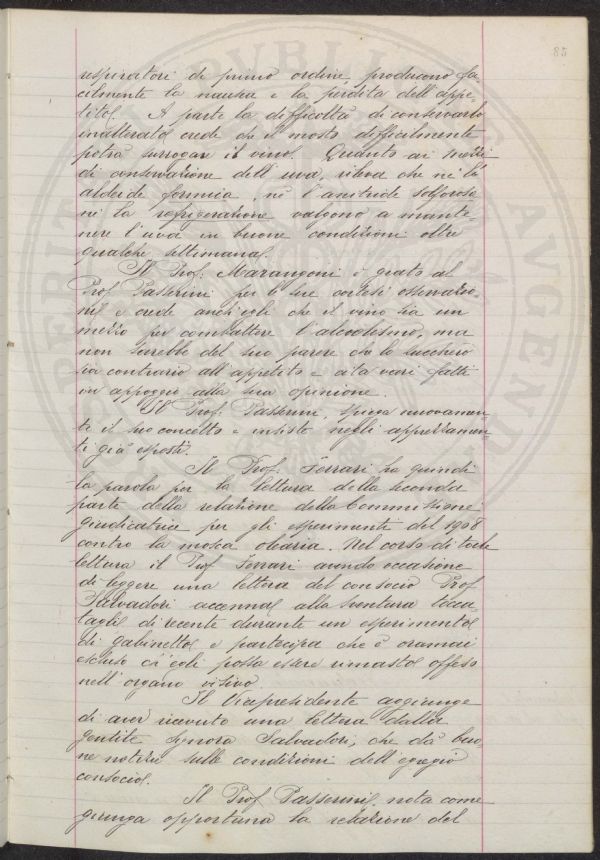 85
respiratori di primo ordine, producono fa-
cilmente la nausea e la perdita dell'appe-
tito. A parte la difficoltà di conservarlo
inalterato crede che il mosto difficilmente
potrà surrogare il vino. Quanto ai mezzi
di conservazione dell'uva, rileva che nè l'
aldeide formica, nè l'anidride solforosa
nè la refrigerazione valgono a mante
nere l'uva in buone condizioni oltre
qualche settimana.
Il Prof. Marangoni è grato al
Prof. Passerini per le sue cortesi osservazio-
ni e crede anch'egli che il vino sia un
mezzo per combattere l'alcoolismo, ma
non sarebbe del suo parere che lo zucchero
sia contrario all'appetito e cita vari fatti
in appoggio alla sua opinione.
Il Prof. Passerini, spiega nuovamen-
te il suo concetto e insiste negli apprezzamen-
ti già esposti.
Il Prof. Ferrari ha quindi
la parola per la lettura della seconda
parte della relazione della Commissione
giudicatrice per gli esperimenti del 1908
contro la mosca olearia. Nel corso di tale
lettura il Prof. Ferrari avendo occasione
di leggere una lettera del consocio Prof
Salvadori accenna alla sventura tocca-
tagli di recente durante un esperimento
di gabinetto e partecipa che è oramai
escluso ch'egli possa essere rimasto offeso
nell'organo visivo.
Il Vicepresidente aggiunge
di aver ricevuto una lettera dalla
gentile Signora Salvadori, che dà buo-
ne notizie sulle condizioni dell'egregio
consocio.
Il Prof. Passerini, nota come
giunga opportuna la relazione del